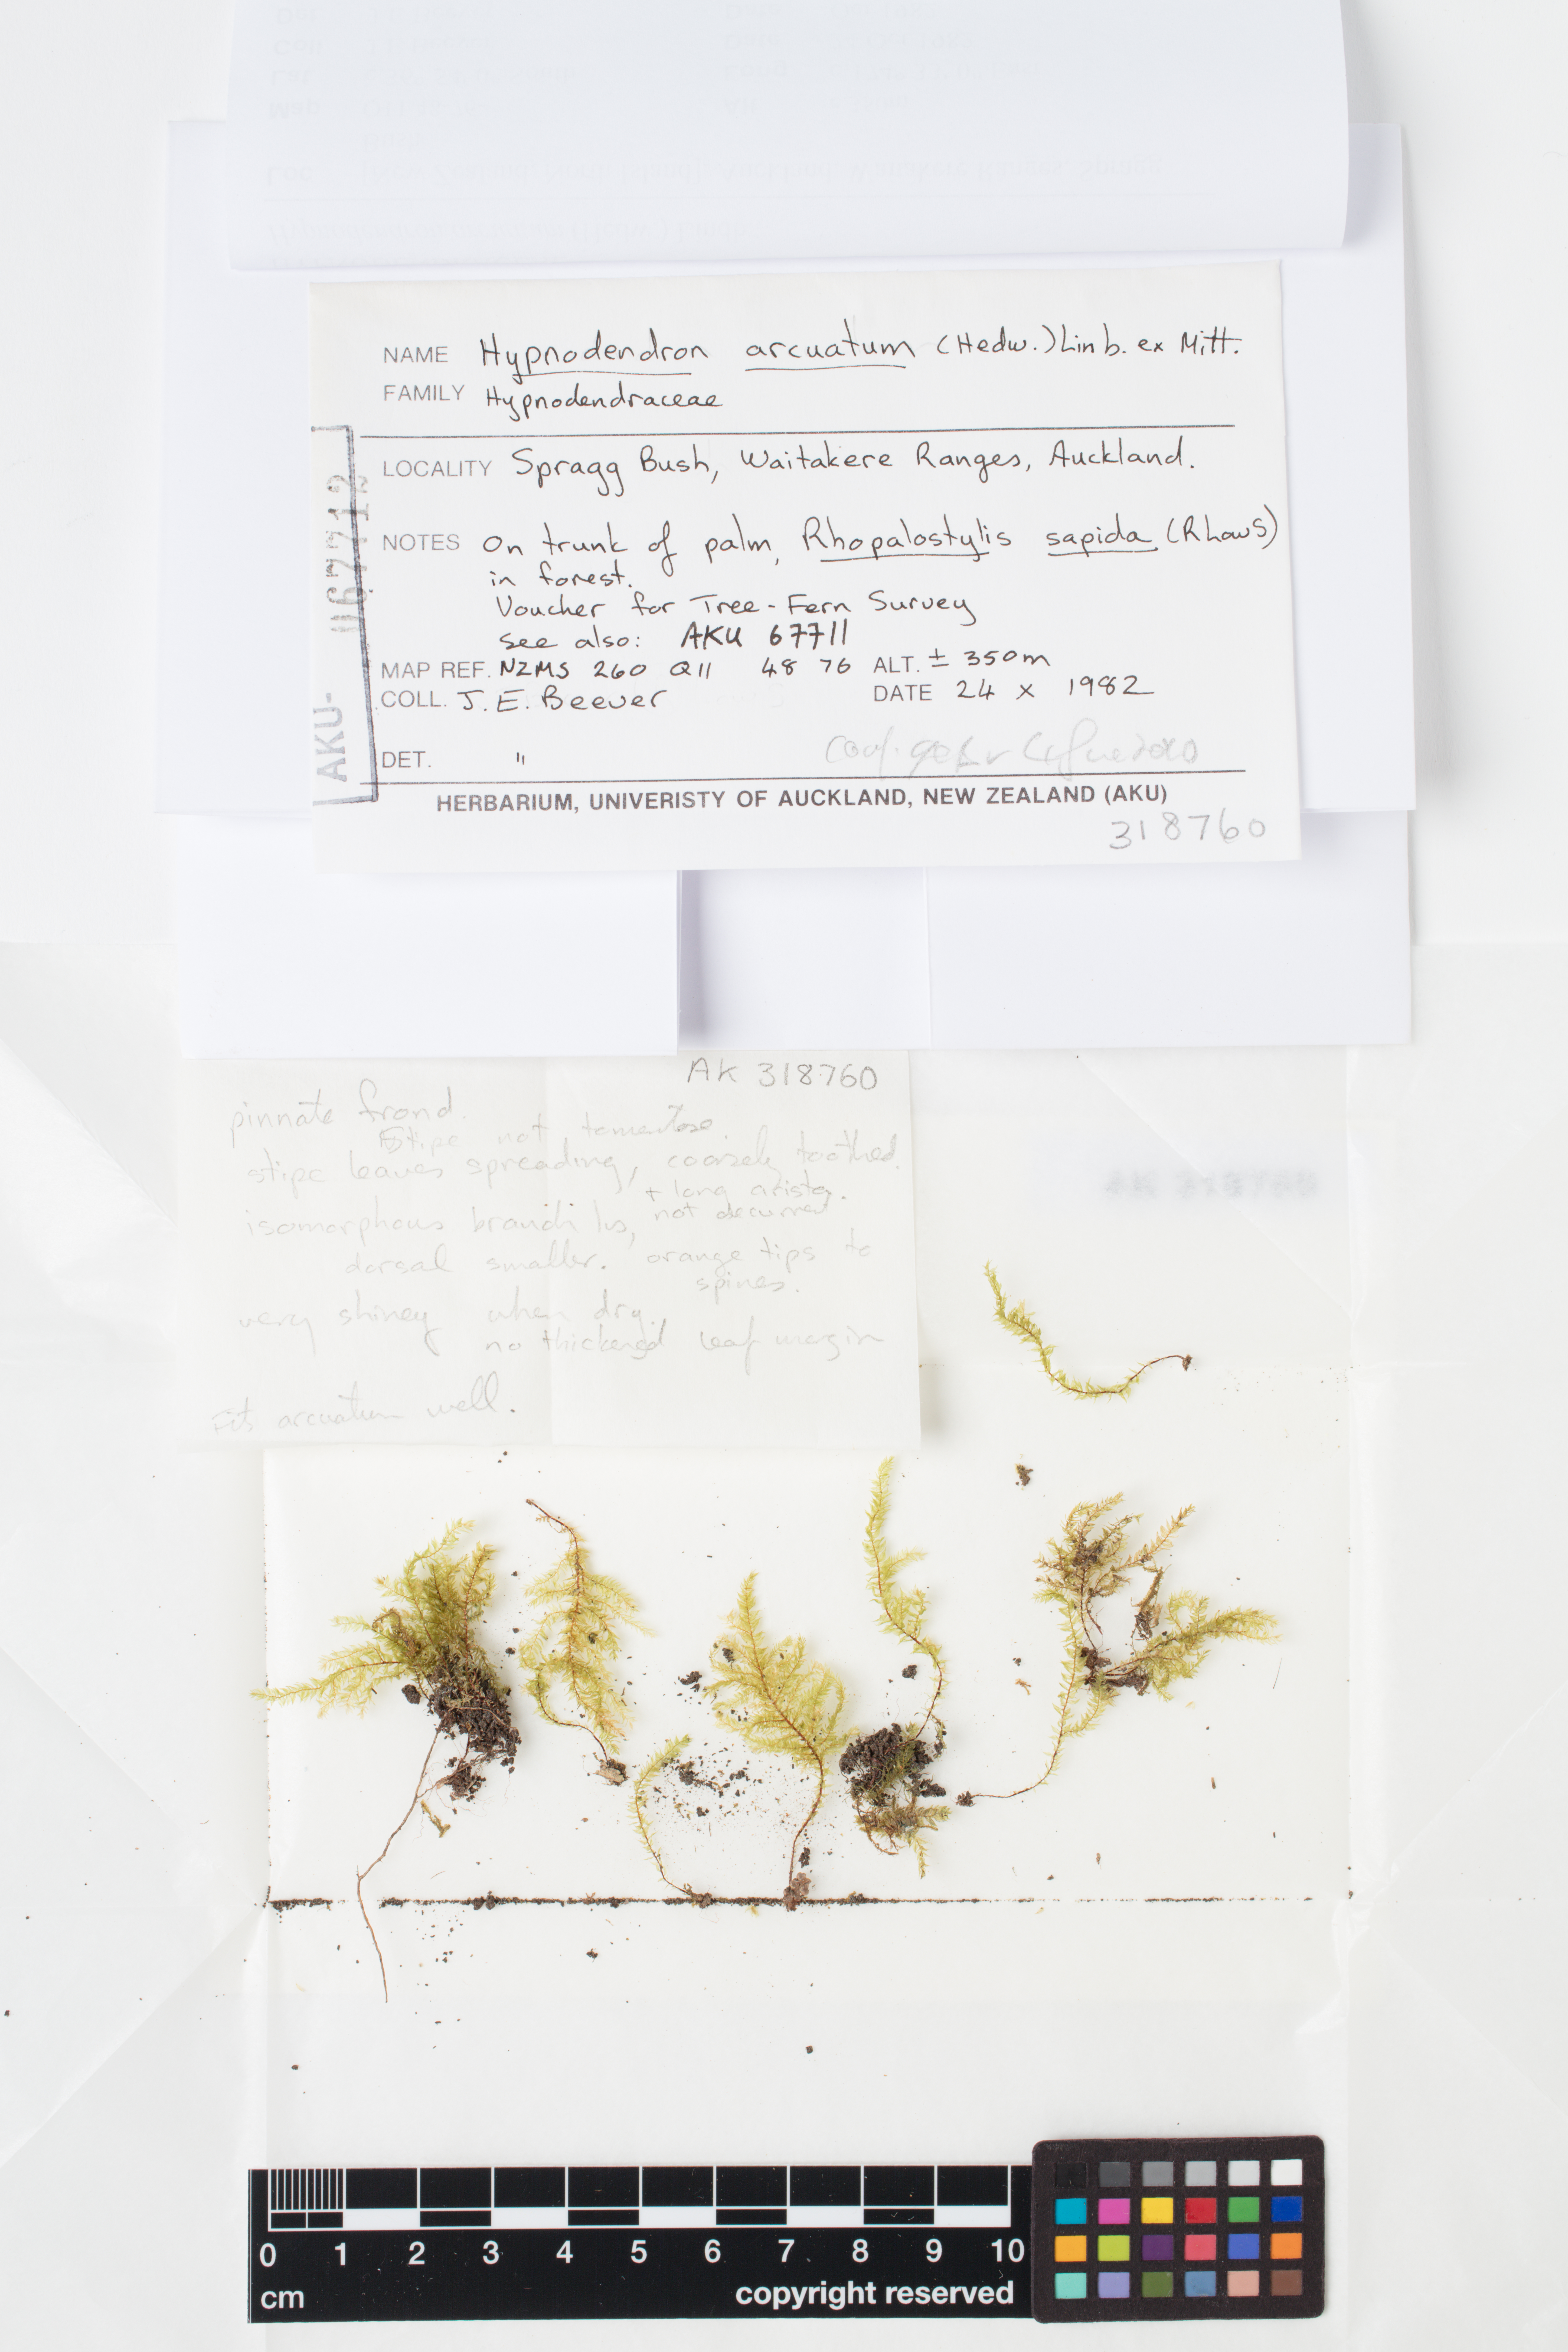 NAME Hypnodendron arcuatum (Hedw.) Linb. ex Mitt.
FAMILY Hypnodendraceae
LOCALITY Spragg Bush, Waitakere Ranges, Auckland.
NOTES On trunk of palm, Rhopalostylis sapida (RhawS)
in forest.
Voucher for Tree-Fern Survey
see also: AKU 67711
MAP REF. NZMS 260 Q11 48 76 ALT. ± 350m
COLL. J. E. Beever DATE 24 x 1982
DET. "
HERBARIUM, UNIVERISTY OF AUCKLAND, NEW ZEALAND (AKU)
318760
AKU- 067712
AK 318760
pinnate frond.
Stipe not tomentose.
stipe leaves spreading, coarsely toothed.
+ long arista.
isomorphous branch lvs, not decurrent
dorsal smaller. orange tips to
spines.
very shiney when dry.
no thickened leaf margin
Fits arcuatum well.
AK 318760
0 1 2 3 4 5 6 7 8 9 10
cm copyright reserved